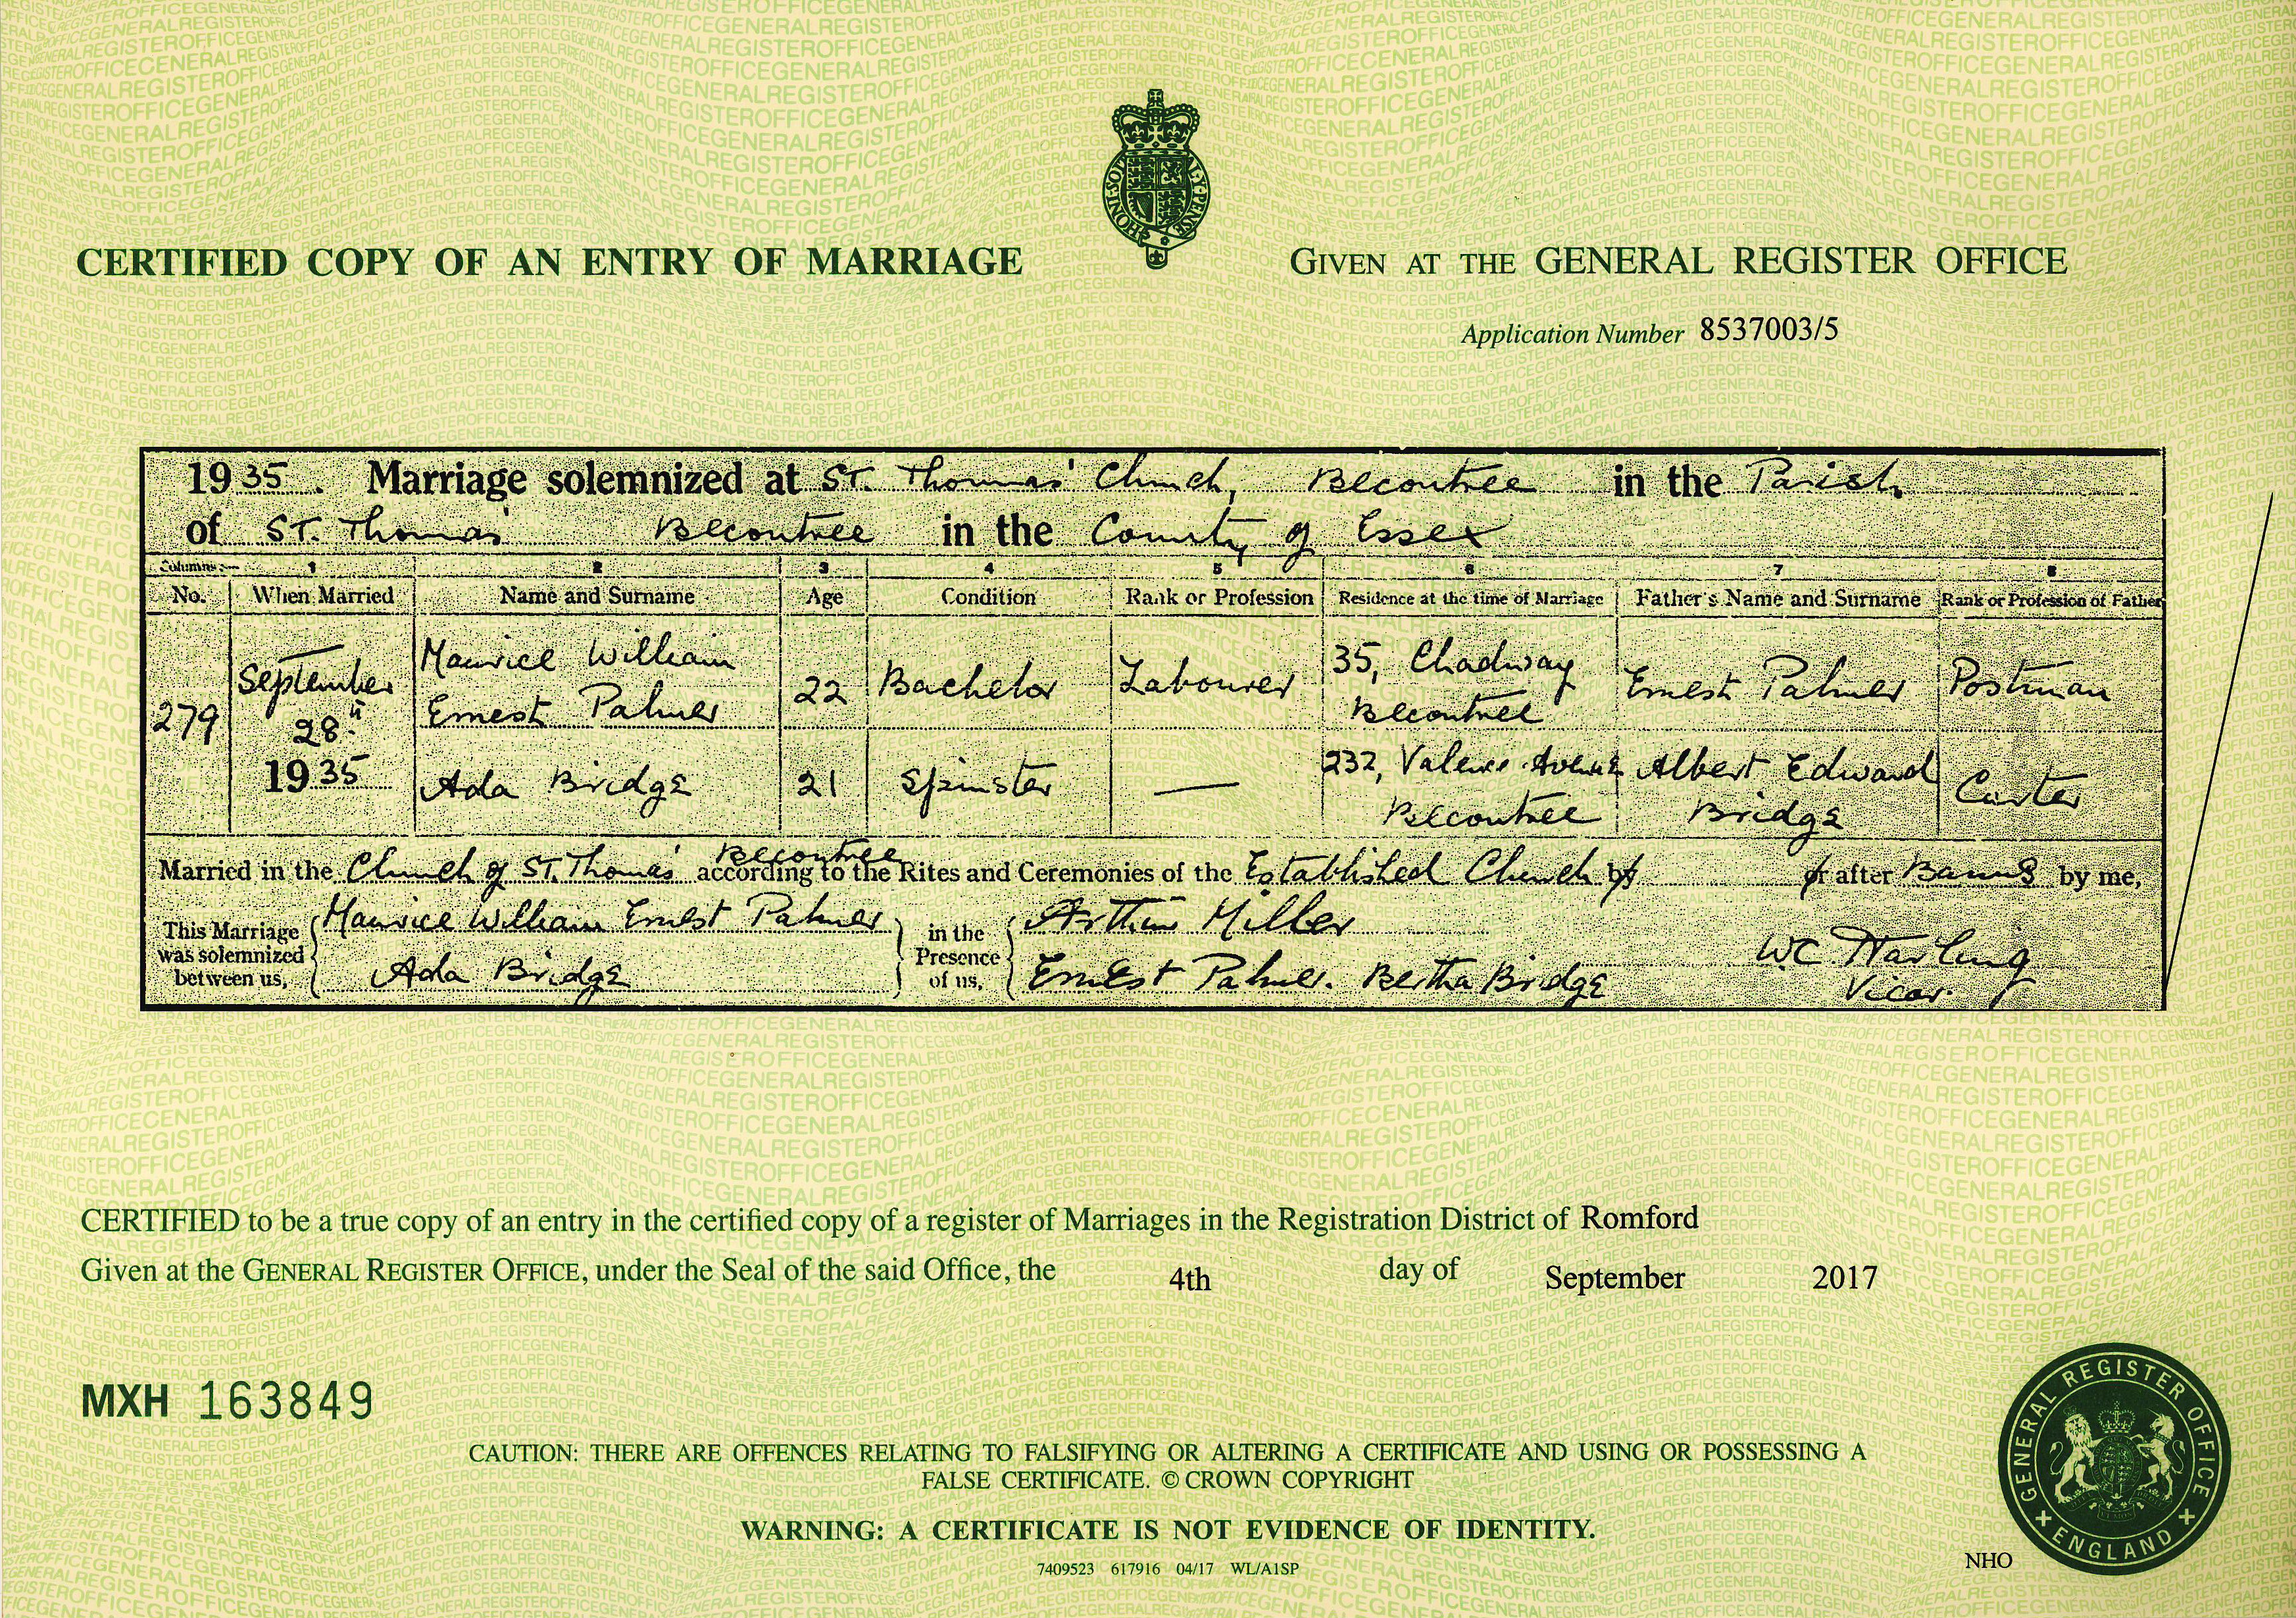 CERTIFIED COPY OF AN ENTRY OF MARRIAGE
GIVEN AT THE GENERAL REGISTER OFFICE
Application Number 8537003/5
1935. Marriage solemnized at St. Thomas' Church, Becontree in the Parish
of St. Thomas' Becontree in the County of Essex
Columns:— 1 2 3 4 5 6 7 8
No. When Married Name and Surname Age Condition Rank or Profession Residence at the time of Marriage Father's Name and Surname Rank or Profession of Father
279 September 28th 1935
Maurice William Ernest Palmer 22 Bachelor Labourer 35, Chadway Becontree Ernest Palmer Postman
Ada Bridge 21 Spinster — 232, Valence Avenue Becontree Albert Edward Bridge Carter
Married in the Church of St. Thomas' Becontree according to the Rites and Ceremonies of the Established Church by or after Banns by me,
This Marriage was solemnized between us, Maurice William Ernest Palmer Ada Bridge
in the Presence of us, Arthur Miller Ernest Palmer. Bertha Bridge
W.C. Harling Vicar.
CERTIFIED to be a true copy of an entry in the certified copy of a register of Marriages in the Registration District of Romford
Given at the GENERAL REGISTER OFFICE, under the Seal of the said Office, the 4th day of September 2017
MXH 163849
CAUTION: THERE ARE OFFENCES RELATING TO FALSIFYING OR ALTERING A CERTIFICATE AND USING OR POSSESSING A
FALSE CERTIFICATE. © CROWN COPYRIGHT
WARNING: A CERTIFICATE IS NOT EVIDENCE OF IDENTITY.
7409523 617916 04/17 WL/A1SP
NHO
GENERAL REGISTER OFFICE
ENGLAND